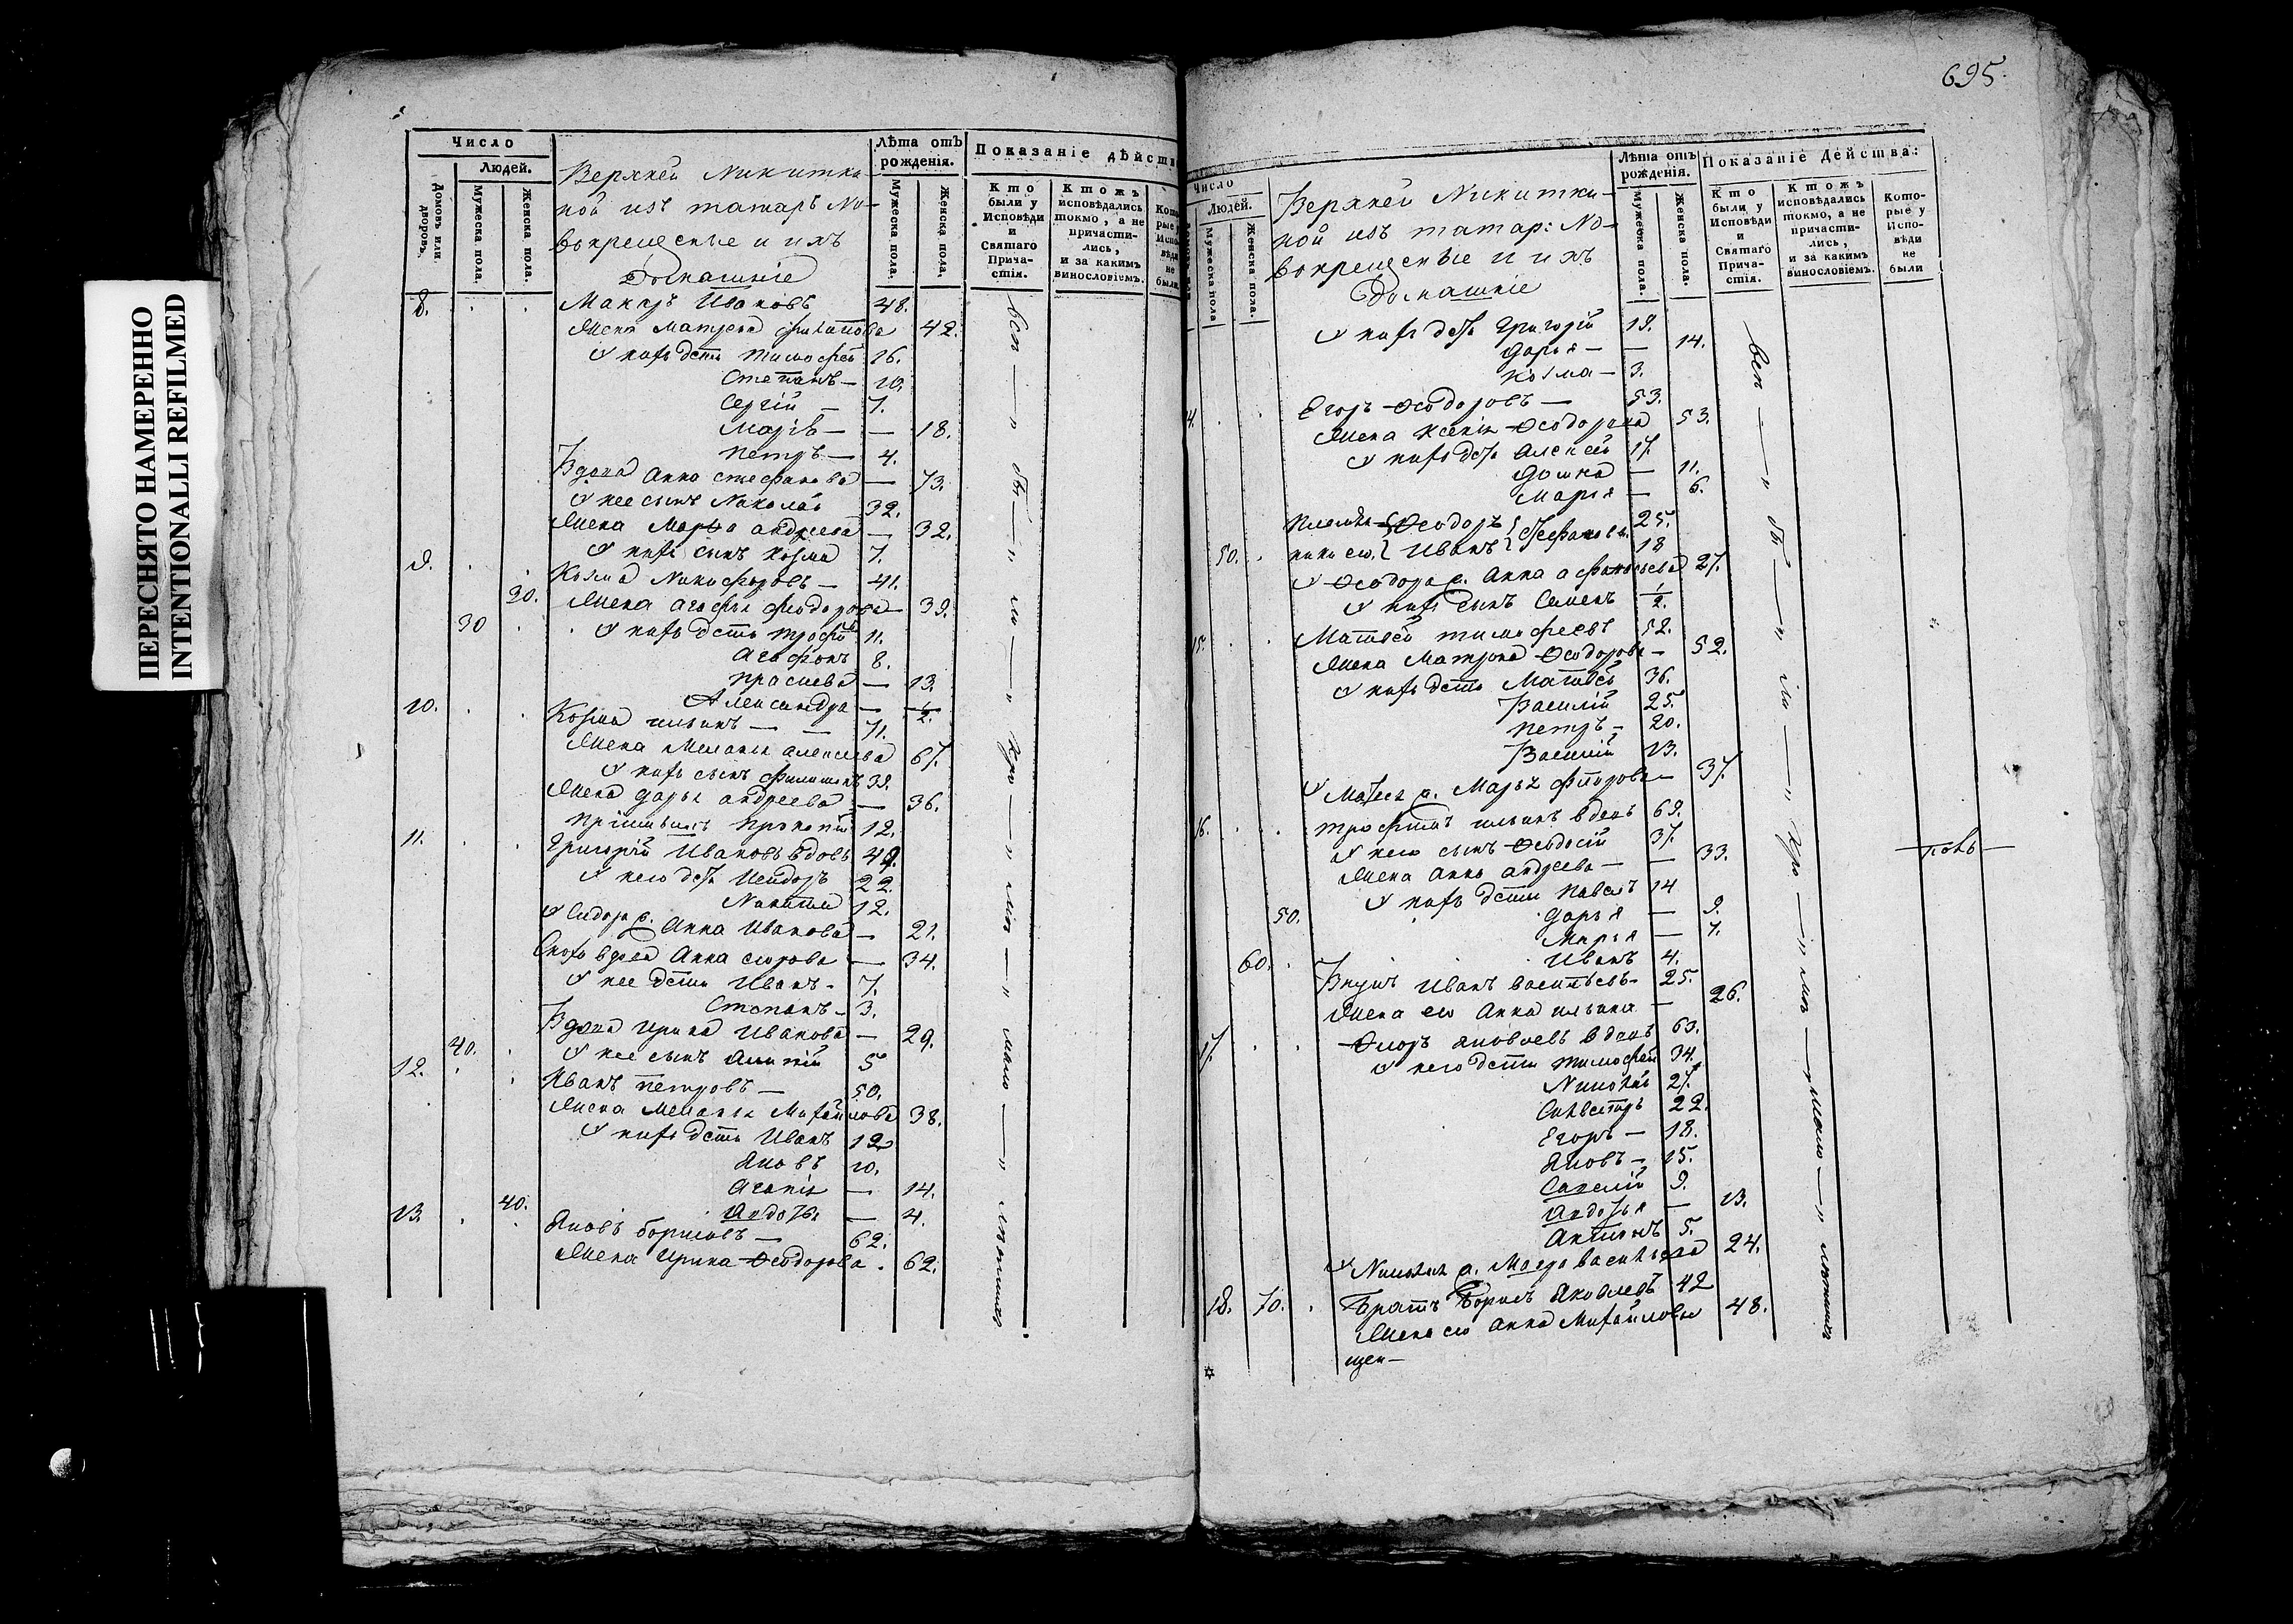 ПЕРЕСНЯТО НАМЕРЕННО
INTENTIONALLI REFILMED
Число
Людей.
Домовъ или дворовъ.
Мужеска пола.
Женска пола.
Верхней Никитки-
ной изъ татаръ но-
вокрещеные и ихъ
Домашніе
Лѣта отъ рожденія.
Мужеска пола.
Женска пола.
Показаніе дѣйств
Кто были у Исповѣди и Святаго Прича-стія.
Ктожъ исповѣдались токмо, а не причасти-лись, и за какимъ винословіемъ.
8. Макаръ Ивановъ 48.
Жена Матрена Филипова 42.
У нихъ дѣти Тимофей 16.
Степанъ — 10.
Сергій — 7.
Марія — — 18.
Петръ — 4.
Вдова Анна Стефанова — 73.
У нее сынъ Николай 32.
Жена Марфа Андреева — 32.
У нихъ сынъ Козма 7.
9. Козма Никифоровъ — 41.
20. Жена Агафья Феодорова — 39.
30 У нихъ дѣти 11.
Агафонъ 8.
— 13.
Александра — 1/2.
10. Козма Ильинъ — — 71.
Жена Меланья Алексеева 67.
У нихъ сынъ 39.
Жена Дарья Андреева — 36.
Прокопій 12.
11. Григорій Ивановъ вдовъ 49.
У него дѣти 22.
Никита 12.
У Сидора ж. Анна Иванова — 21.
вдова Анна — 34.
У нее дѣти Иванъ — 7.
Степанъ — 3.
Вдова Ирина Иванова — 29.
40. У нее сынъ 5
12. Иванъ Петровъ — 50.
Жена Меланья Михайлова 38.
У нихъ дѣти Иванъ 12
Яковъ 10.
Агапія — 14.
40. Авдотья — 4.
13. Яковъ Борисовъ — 62.
Жена Ирина Ѳеодорова . 62.
всѣ — „ — бы — „ — ли — „ — при — „ —
695.
Число
Людей.
Мужеска пола
Женска пола.
Верхней Никитки-
ной изъ татар: но-
вокрещеные и ихъ
Домашніе
Лѣта отъ рожденія.
Мужеска пола.
Женска пола.
Показаніе Действа:
Кто были у Исповѣди и Святаго Прича-стія.
Ктожъ исповѣдались токмо, а не причасти-лись, и за какимъ винословіемъ.
Кото-рые у Испо-вѣди не были
У нихъ дѣти Григорій 19.
Дарья — — 14.
Козма — 3.
Егоръ Ѳеодоровъ — 53.
Жена Ксенія Ѳеодорова 53.
У нихъ дѣти Алексей 17.
Домна — 11.
Марья — 6.
Племян- Ѳеодоръ 25.
50. ники его. Иванъ 18
У Ѳеодора ж. Анна 27.
У нихъ сынъ Семенъ 1/2.
15. Матвей Тимофеевъ 52.
Жена Матрона Ѳеодорова — 52.
У нихъ дѣти Матвей 36.
Василій 25.
Петръ — 20.
Василій 13.
У Матвея ж. Марья 37.
16. Трофимъ Ильинъ вдовъ 69.
У него сынъ Ѳеодосій 37.
Жена Анна Андреева — — 33.
У нихъ дѣти Павелъ 14
50. Дарья — 9.
Марья — 7.
60. Иванъ 4.
Внукъ Иванъ Васильевъ — 25.
Жена его Анна Ильина — 26.
17. Яковлевъ вдовъ 63.
У него дѣти Тимофей 34.
Николай 27.
Силвестръ 22.
Егоръ — 18.
Яковъ — 15.
Савелій 9.
Авдотья — 13.
Антонъ 5.
У Николая ж. Васильева 24.
18. 70. Братъ Борисъ Яковлевъ 42
Жена его Анна Михайлова 48.
щен—
всѣ — „ — бы — „ — ли — „ — при — „ —